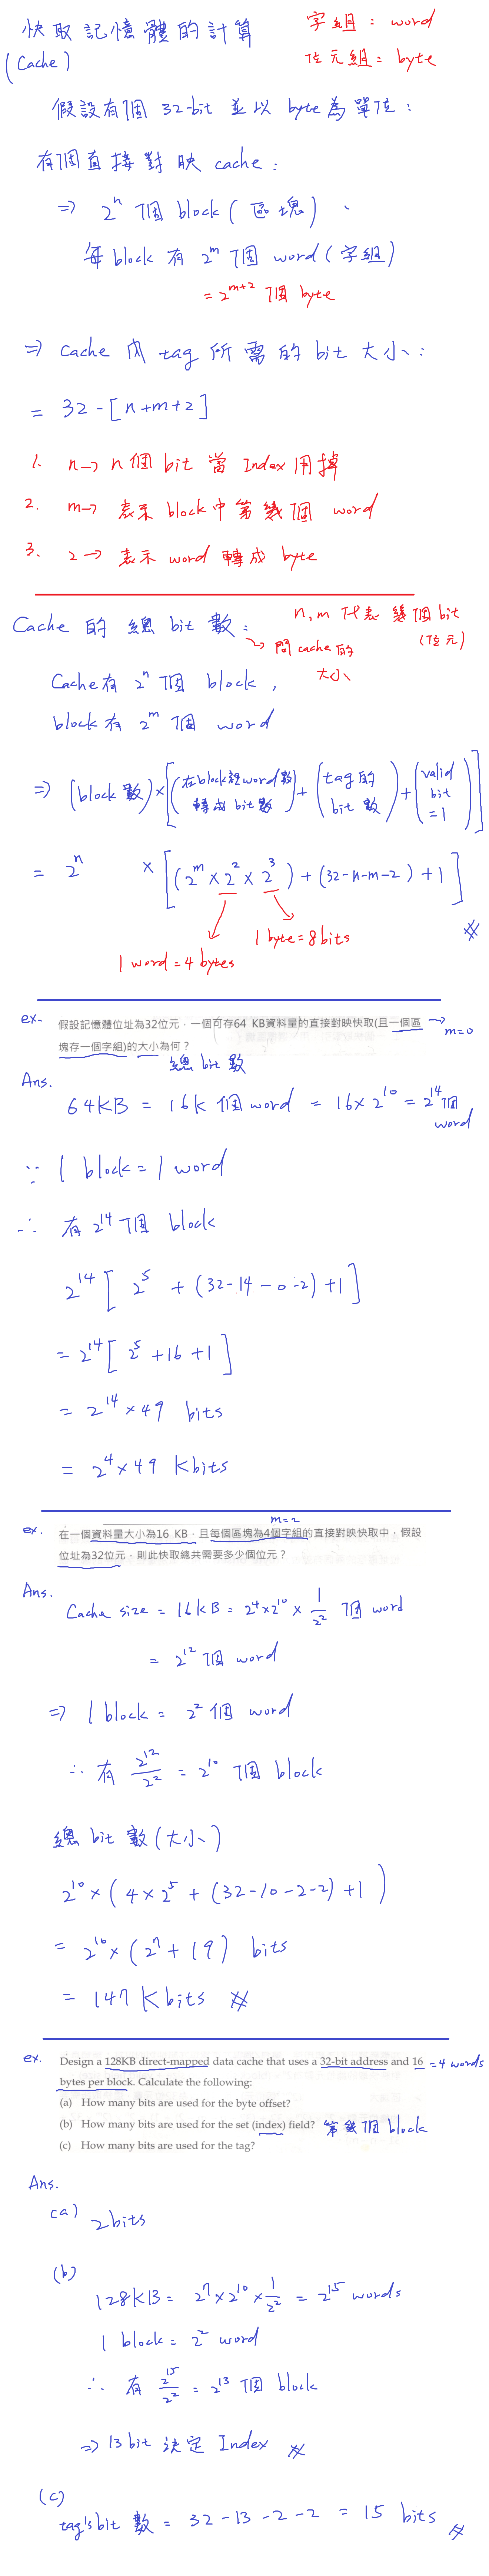 快取記憶體的計算
(Cache)
字組：word
位元組：byte
假設有個 32-bit 並以 byte 為單位：
有個直接對映 cache：
⇒ 2^n 個 block (區塊)、
每 block 有 2^m 個 word (字組)
= 2^{m+2} 個 byte
⇒ cache 內 tag 所需的 bit 大小：
= 32 - [n+m+2]
1. n → n 個 bit 當 Index 用掉
2. m → 表示 block 中第幾個 word
3. 2 → 表示 word 轉成 byte
Cache 的總 bit 數：
→ 問 cache 的
大小
n, m 代表幾個 bit
(位元)
Cache 有 2^n 個 block,
block 有 2^m 個 word
⇒ (block 數) × [(在 block 裡 word 數 轉成 bit 數) + (tag 的 bit 數) + (valid bit = 1)]
= 2^n × [(2^m × 2^2 × 2^3) + (32-n-m-2) + 1]
1 byte = 8 bits
1 word = 4 bytes
#
ex.
假設記憶體位址為32位元，一個可存64 KB資料量的直接對映快取(且一個區
→ m=0
塊存一個字組)的大小為何？
總 bit 數
Ans.
64KB = 16K 個 word = 16 × 2^10 = 2^14 個
word
∵ 1 block = 1 word
∴ 有 2^14 個 block
2^14 [ 2^5 + (32-14-0-2) +1 ]
= 2^14 [ 2^5 +16 +1 ]
= 2^14 × 49 bits
= 2^4 × 49 Kbits
m=2
ex.
在一個資料量大小為16 KB，且每個區塊為4個字組的直接對映快取中，假設
位址為32位元，則此快取總共需要多少個位元？
Ans.
Cache size = 16KB = 2^4 × 2^10 × 1/2^2 個 word
= 2^12 個 word
⇒ 1 block = 2^2 個 word
∴ 有 2^12/2^2 = 2^10 個 block
總 bit 數 (大小)
2^10 × ( 4 × 2^5 + (32-10-2-2) +1 )
= 2^10 × (2^7 + 19) bits
= 147 Kbits #
ex.
Design a 128KB direct-mapped data cache that uses a 32-bit address and 16
= 4 words
bytes per block. Calculate the following:
(a) How many bits are used for the byte offset?
(b) How many bits are used for the set (index) field?
第幾個 block
(c) How many bits are used for the tag?
Ans.
(a) 2 bits
(b)
128KB = 2^7 × 2^10 × 1/2^2 = 2^15 words
1 block = 2^2 word
∴ 有 2^15/2^2 = 2^13 個 block
⇒ 13 bit 決定 Index #
(c)
tag's bit 數 = 32 - 13 - 2 - 2 = 15 bits #